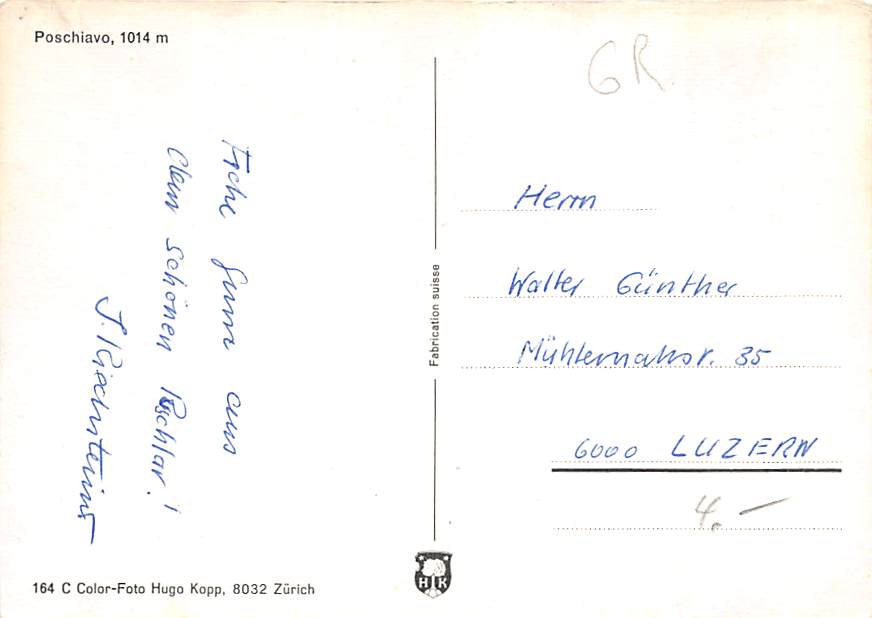 Poschiavo, 1014 m
GR.
aus
dem schönen Puschlav!
Fabrication suisse
Herrn
Walter Günther
Mühlemattstr. 35
6000 LUZERN
4.–
HK
164 C Color-Foto Hugo Kopp, 8032 Zürich